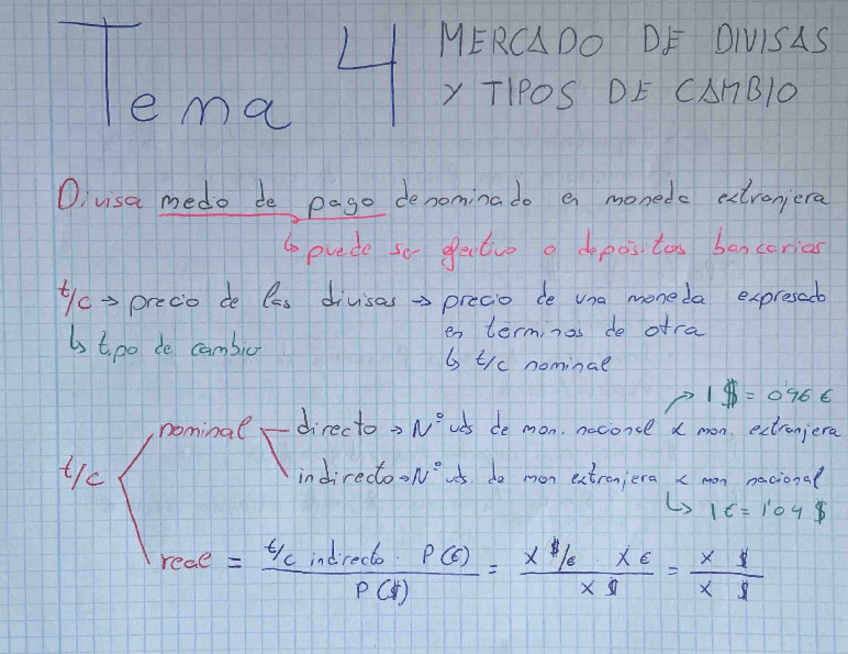 Tema 4 MERCADO DE DIVISAS
Y TIPOS DE CAMBIO
Divisa medio de pago denominado en moneda extranjera
↳ puede ser efectivo o depósitos bancarios
t/c → precio de las divisas → precio de una moneda expresado
↳ tipo de cambio en terminos de otra
↳ t/c nominal
→ 1 $ = 0'96 €
nominal directo → Nº uds de mon. nacional x mon. extranjera
t/c indirecto → Nº uds. de mon extranjera x mon nacional
↳ 1 € = 1'04 $
real = t/c indirecto · P(€) / P($) = x $/€ x € / x $ = x $ / x $